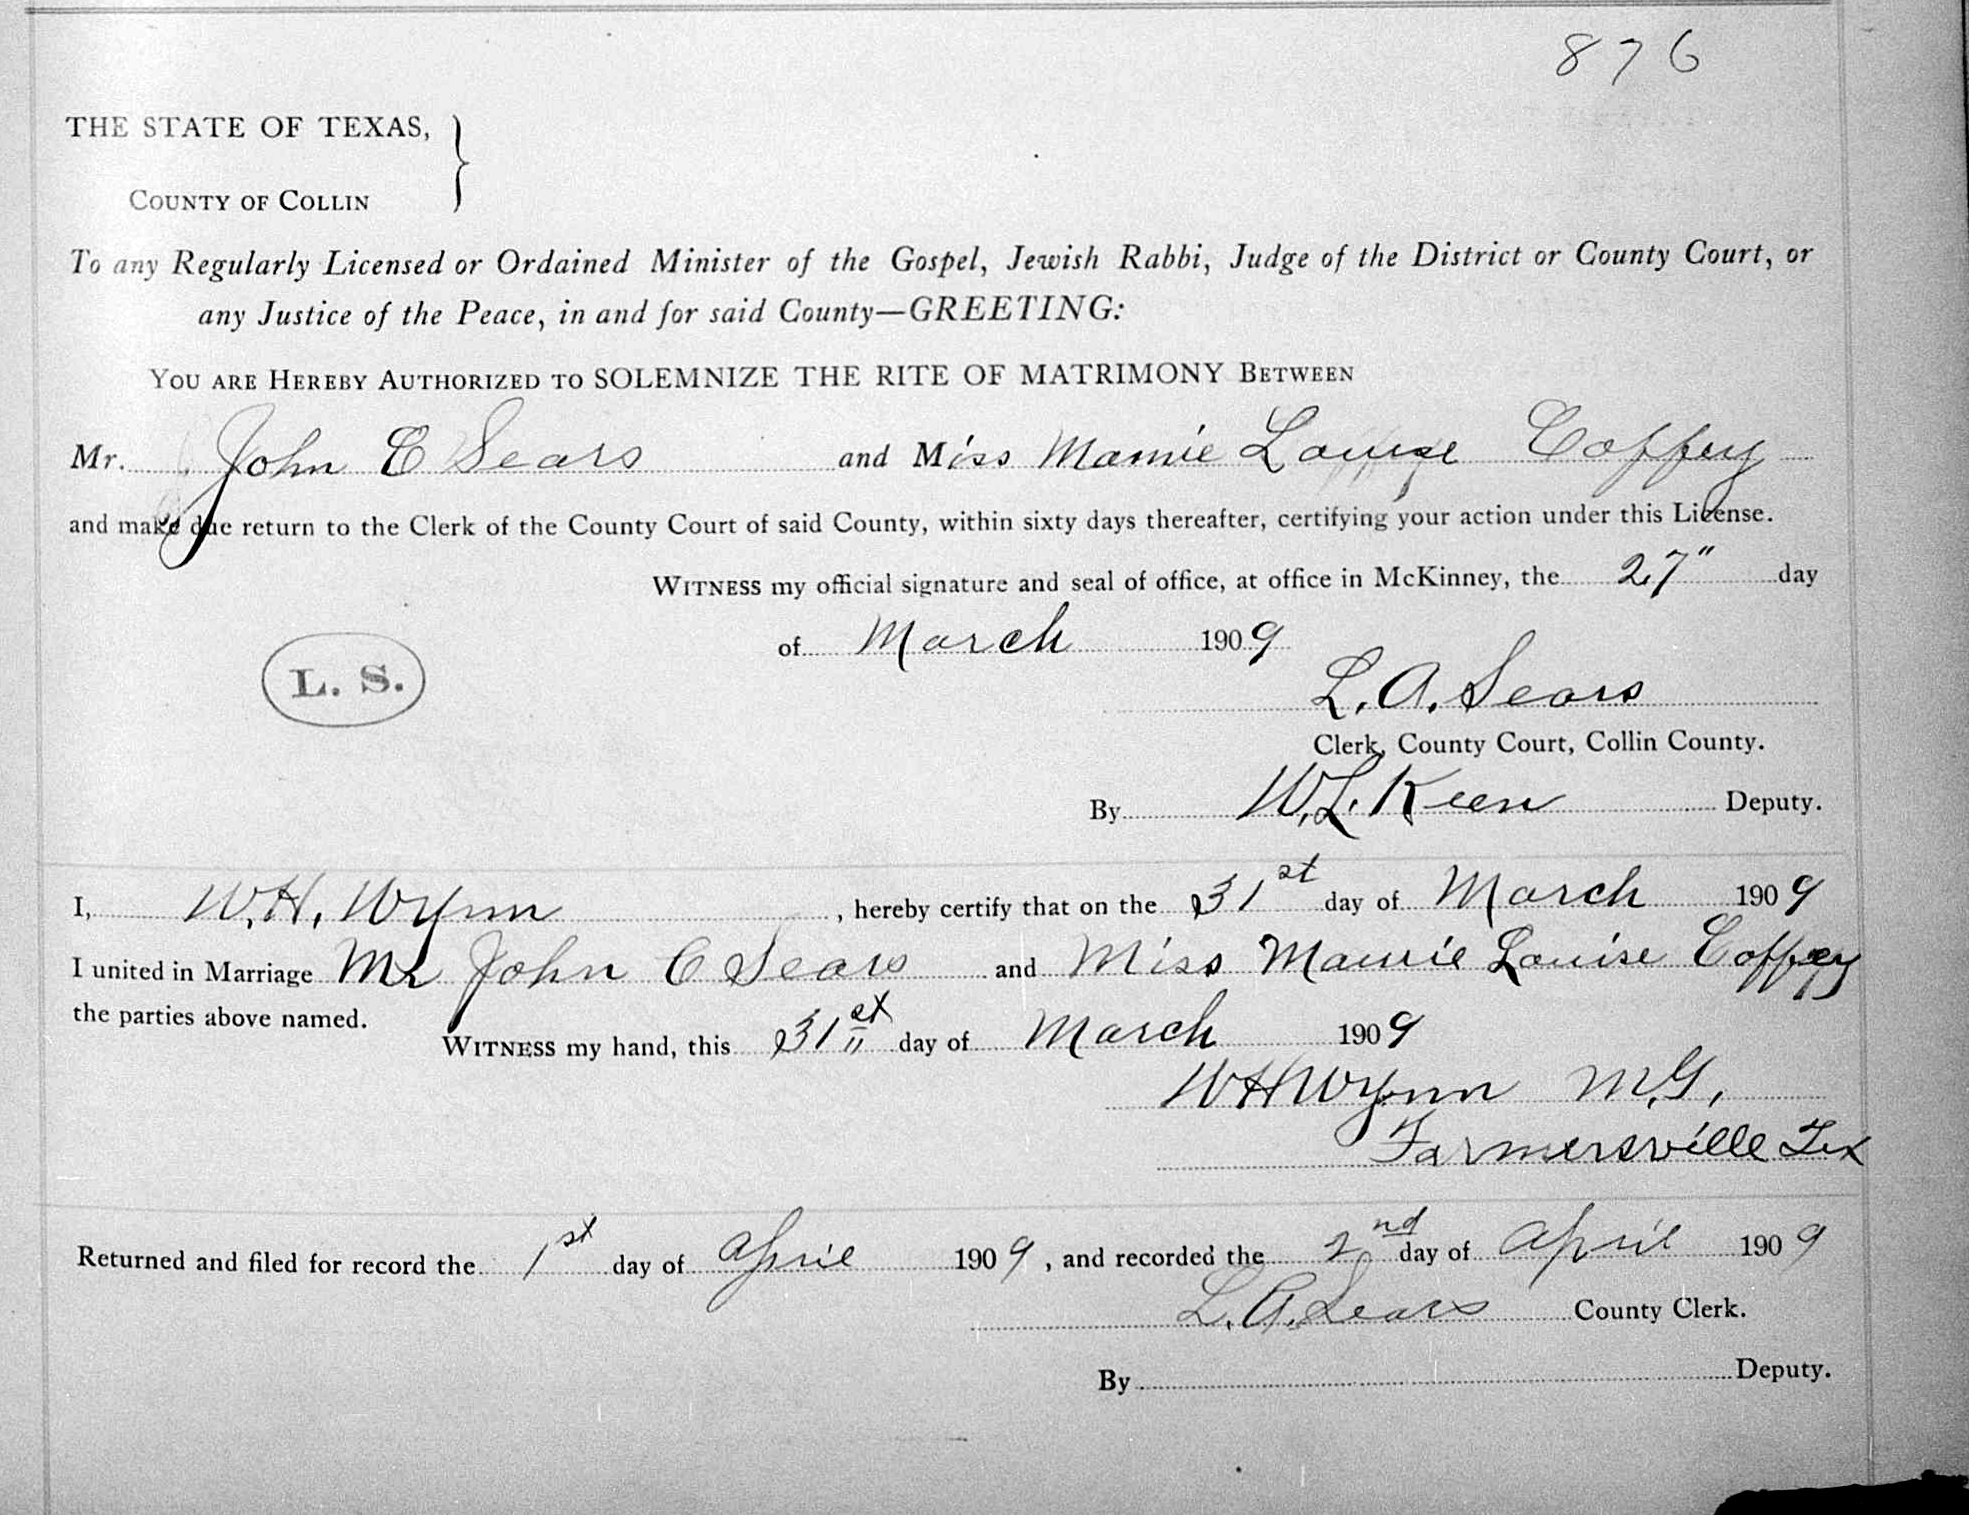 876
THE STATE OF TEXAS,
COUNTY OF COLLIN
To any Regularly Licensed or Ordained Minister of the Gospel, Jewish Rabbi, Judge of the District or County Court, or
any Justice of the Peace, in and for said County—GREETING:
YOU ARE HEREBY AUTHORIZED TO SOLEMNIZE THE RITE OF MATRIMONY BETWEEN
Mr. John E Sears and Miss Mamie Louise Coffey
and make due return to the Clerk of the County Court of said County, within sixty days thereafter, certifying your action under this License.
WITNESS my official signature and seal of office, at office in McKinney, the 27" day
of March 1909
L. S.
L. A. Sears
Clerk, County Court, Collin County.
By W. L. Keen Deputy.
I, W. H. Wynn, hereby certify that on the 31st day of March 1909
I united in Marriage Mr John C Sears and Miss Mamie Louise Coffey
the parties above named.
WITNESS my hand, this 31st day of March 1909
W H Wynn M.G.,
Farmersville Tex
Returned and filed for record the 1st day of April 1909, and recorded the 2nd day of April 1909
L. A. Sears County Clerk.
By Deputy.